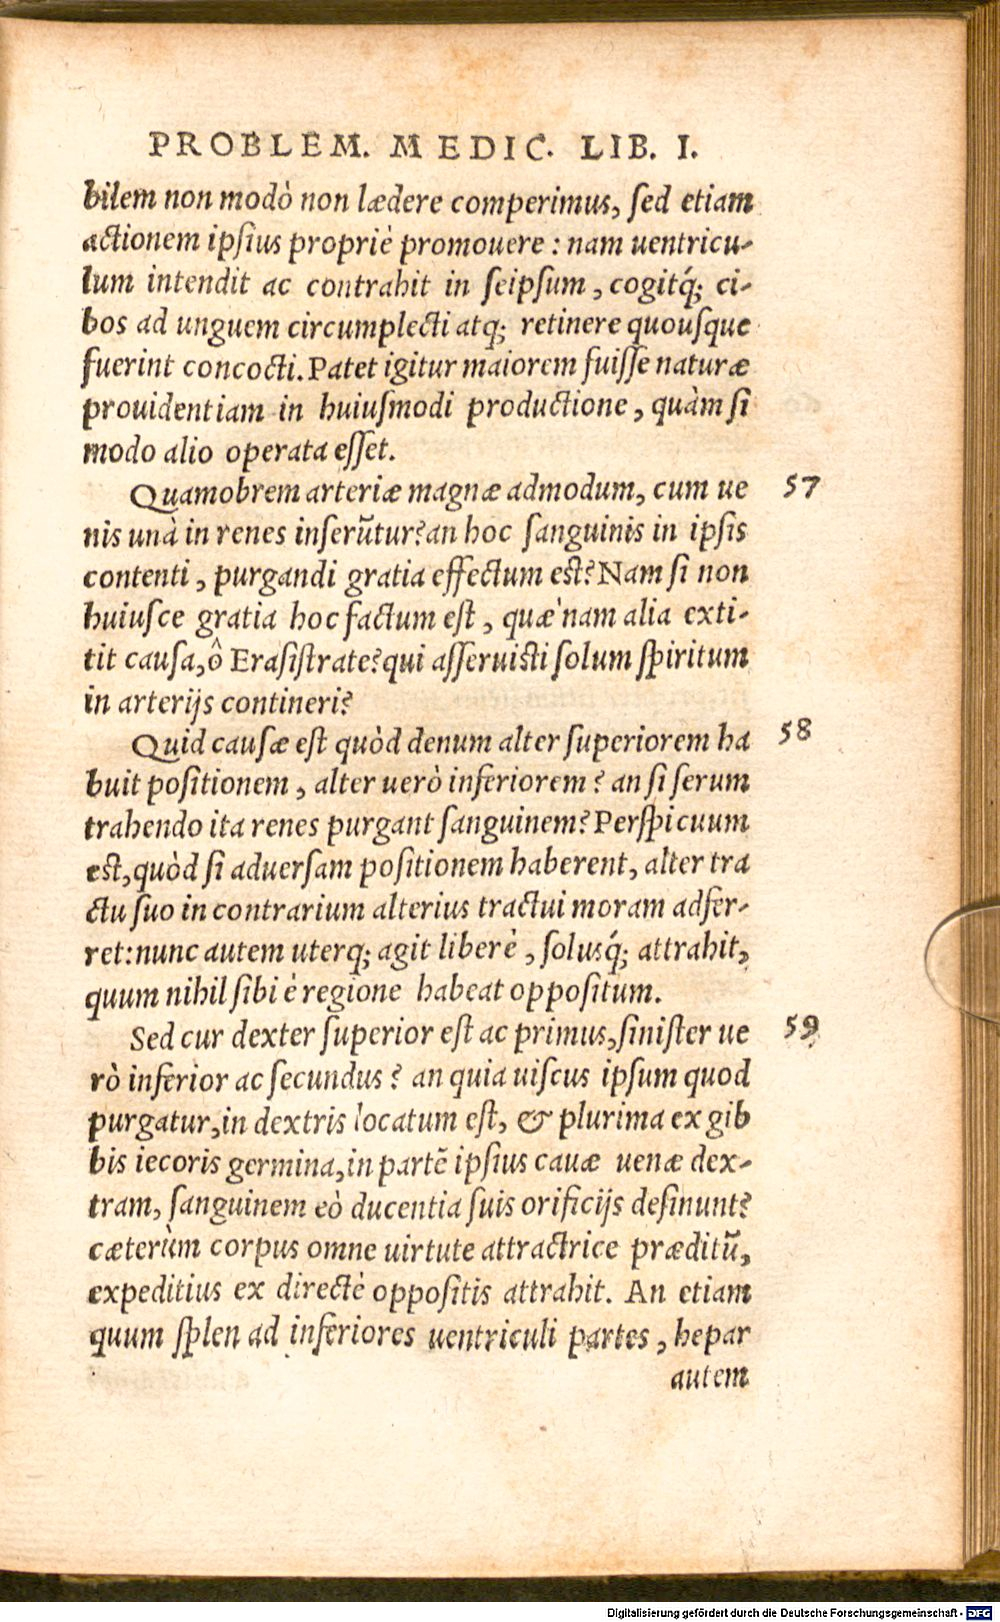 PROBLEM. MEDIC. LIB. I.
bilem non modò non lædere comperimus, ſed etiam
actionem ipſius propriè promouere : nam uentricu-
lum intendit ac contrahit in ſeipſum, cogitq́; ci-
bos ad unguem circumplecti atq; retinere quouſque
fuerint concocti. Patet igitur maiorem fuiſſe naturæ
prouidentiam in huiuſmodi productione, quàm ſi
modo alio operata eſſet.
Quamobrem arteriæ magnæ admodum, cum ue 57
nis unà in renes inſerũtur? an hoc ſanguinis in ipſis
contenti, purgandi gratia effectum eſt? Nam ſi non
huiuſce gratia hoc factum eſt, quæ'nam alia exti-
tit cauſa, ô Eraſiſtrate? qui aſſeruiſti ſolum ſpiritum
in arterijs contineri?
Quid cauſæ eſt quòd denum alter ſuperiorem ha 58
buit poſitionem, alter uerò inferiorem? an ſi ſerum
trahendo ita renes purgant ſanguinem? Perſpicuum
eſt, quòd ſi aduerſam poſitionem haberent, alter tra
ctu ſuo in contrarium alterius tractui moram adfer-
ret: nunc autem uterq; agit liberè, ſolusq́; attrahit,
quum nihil ſibi è regione habeat oppoſitum.
Sed cur dexter ſuperior eſt ac primus, ſiniſter ue 59
rò inferior ac ſecundus? an quia uiſcus ipſum quod
purgatur, in dextris locatum eſt, & plurima ex gib
bis iecoris germina, in partẽ ipſius cauæ uenæ dex-
tram, ſanguinem eò ducentia ſuis orificijs deſinunt?
cæterùm corpus omne uirtute attractrice præditũ,
expeditius ex directè oppoſitis attrahit. An etiam
quum ſplen ad inferiores uentriculi partes, hepar
autem
Digitalisierung gefördert durch die Deutsche Forschungsgemeinschaft - DFG